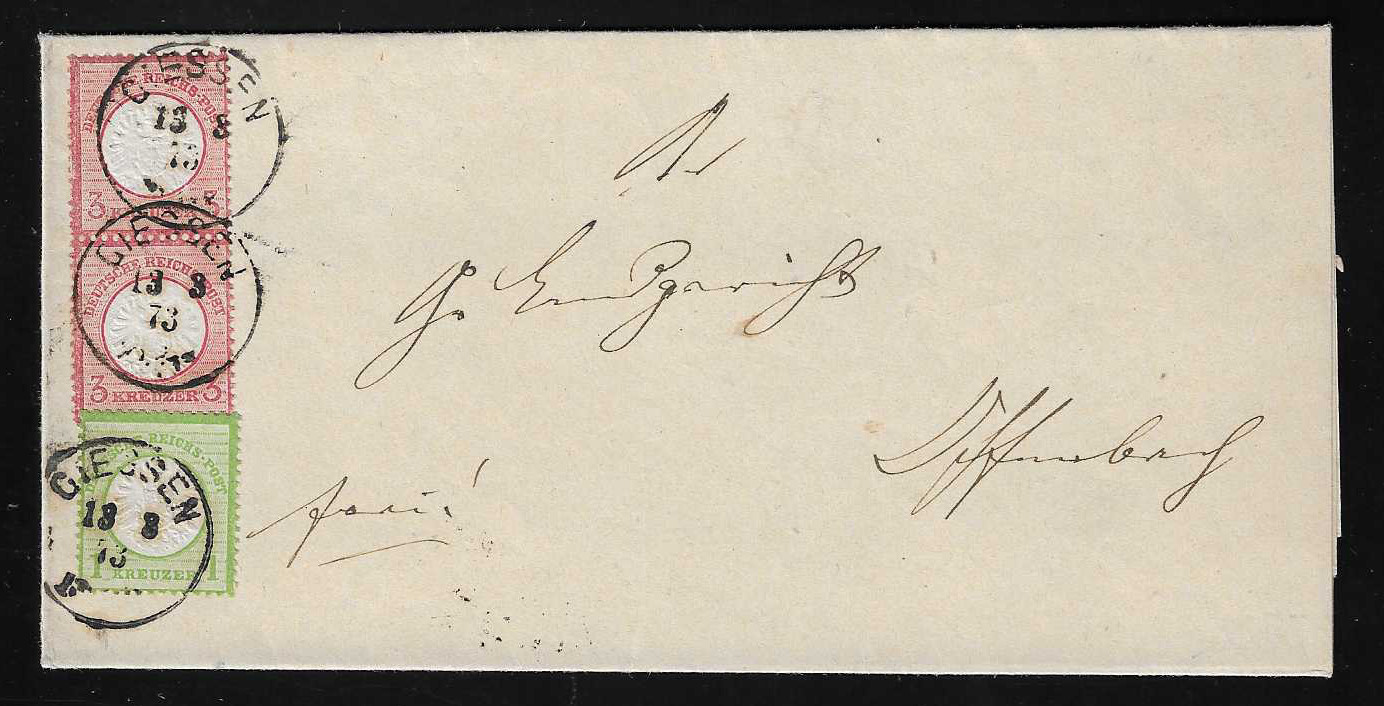 DEUTSCHE REICHS-POST
3 KREUZER 3
GIESSEN
13 8
73
DEUTSCHE REICHS-POST
3 KREUZER 3
GIESSEN
13 8
73
DEUTSCHE REICHS-POST
1 KREUZER 1
GIESSEN
13 8
73
An
Gr. Landgericht
Offenbach
frei!